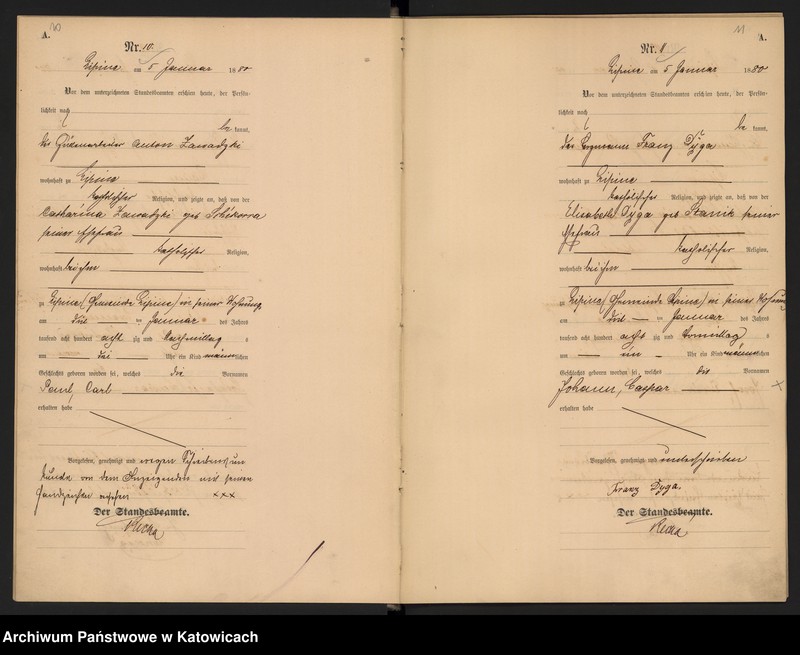 10
A.
Nr. 10.
Lipine am 5 Januar 1880
Vor dem unterzeichneten Standesbeamten erschien heute, der Persön-
lichkeit nach
be kannt,
der Anton Zawadzki
wohnhaft zu Lipine
katholischer Religion, und zeigte an, daß von der
Catharina Zawadzki geb
seiner Ehefrau
katholischer Religion,
wohnhaft bei ihm
zu Lipine (Gemeinde Lipine) in seiner Wohnung
am drei ten Januar des Jahres
tausend acht hundert acht zig und Nachmittag s
um drei Uhr ein Kind männlichen
Geschlechts geboren worden sei, welches die Vornamen
Paul, Carl
erhalten habe
Vorgelesen, genehmigt und wegen Schreibensun
kunde von dem Anzeigenden mit seinem
Handzeichen versehen xxx
Der Standesbeamte.
11
A.
Nr.
Lipine am 5 Januar 1880
Vor dem unterzeichneten Standesbeamten erschien heute, der Persön-
lichkeit nach
be kannt,
der Bergmann Franz Dyga
wohnhaft zu Lipine
katholischer Religion, und zeigte an, daß von der
Elisabeth Dyga geb Stanik seiner
Ehefrau
katholischer Religion,
wohnhaft bei ihm
zu Lipine (Gemeinde Lipine) in seiner Wohnung
am drit ten Januar des Jahres
tausend acht hundert acht zig und Vormittag s
um ein Uhr ein Kind männlichen
Geschlechts geboren worden sei, welches die Vornamen
Johann, Caspar
erhalten habe
Vorgelesen, genehmigt und unterschrieben
Franz Dyga.
Der Standesbeamte.
Archiwum Państwowe w Katowicach